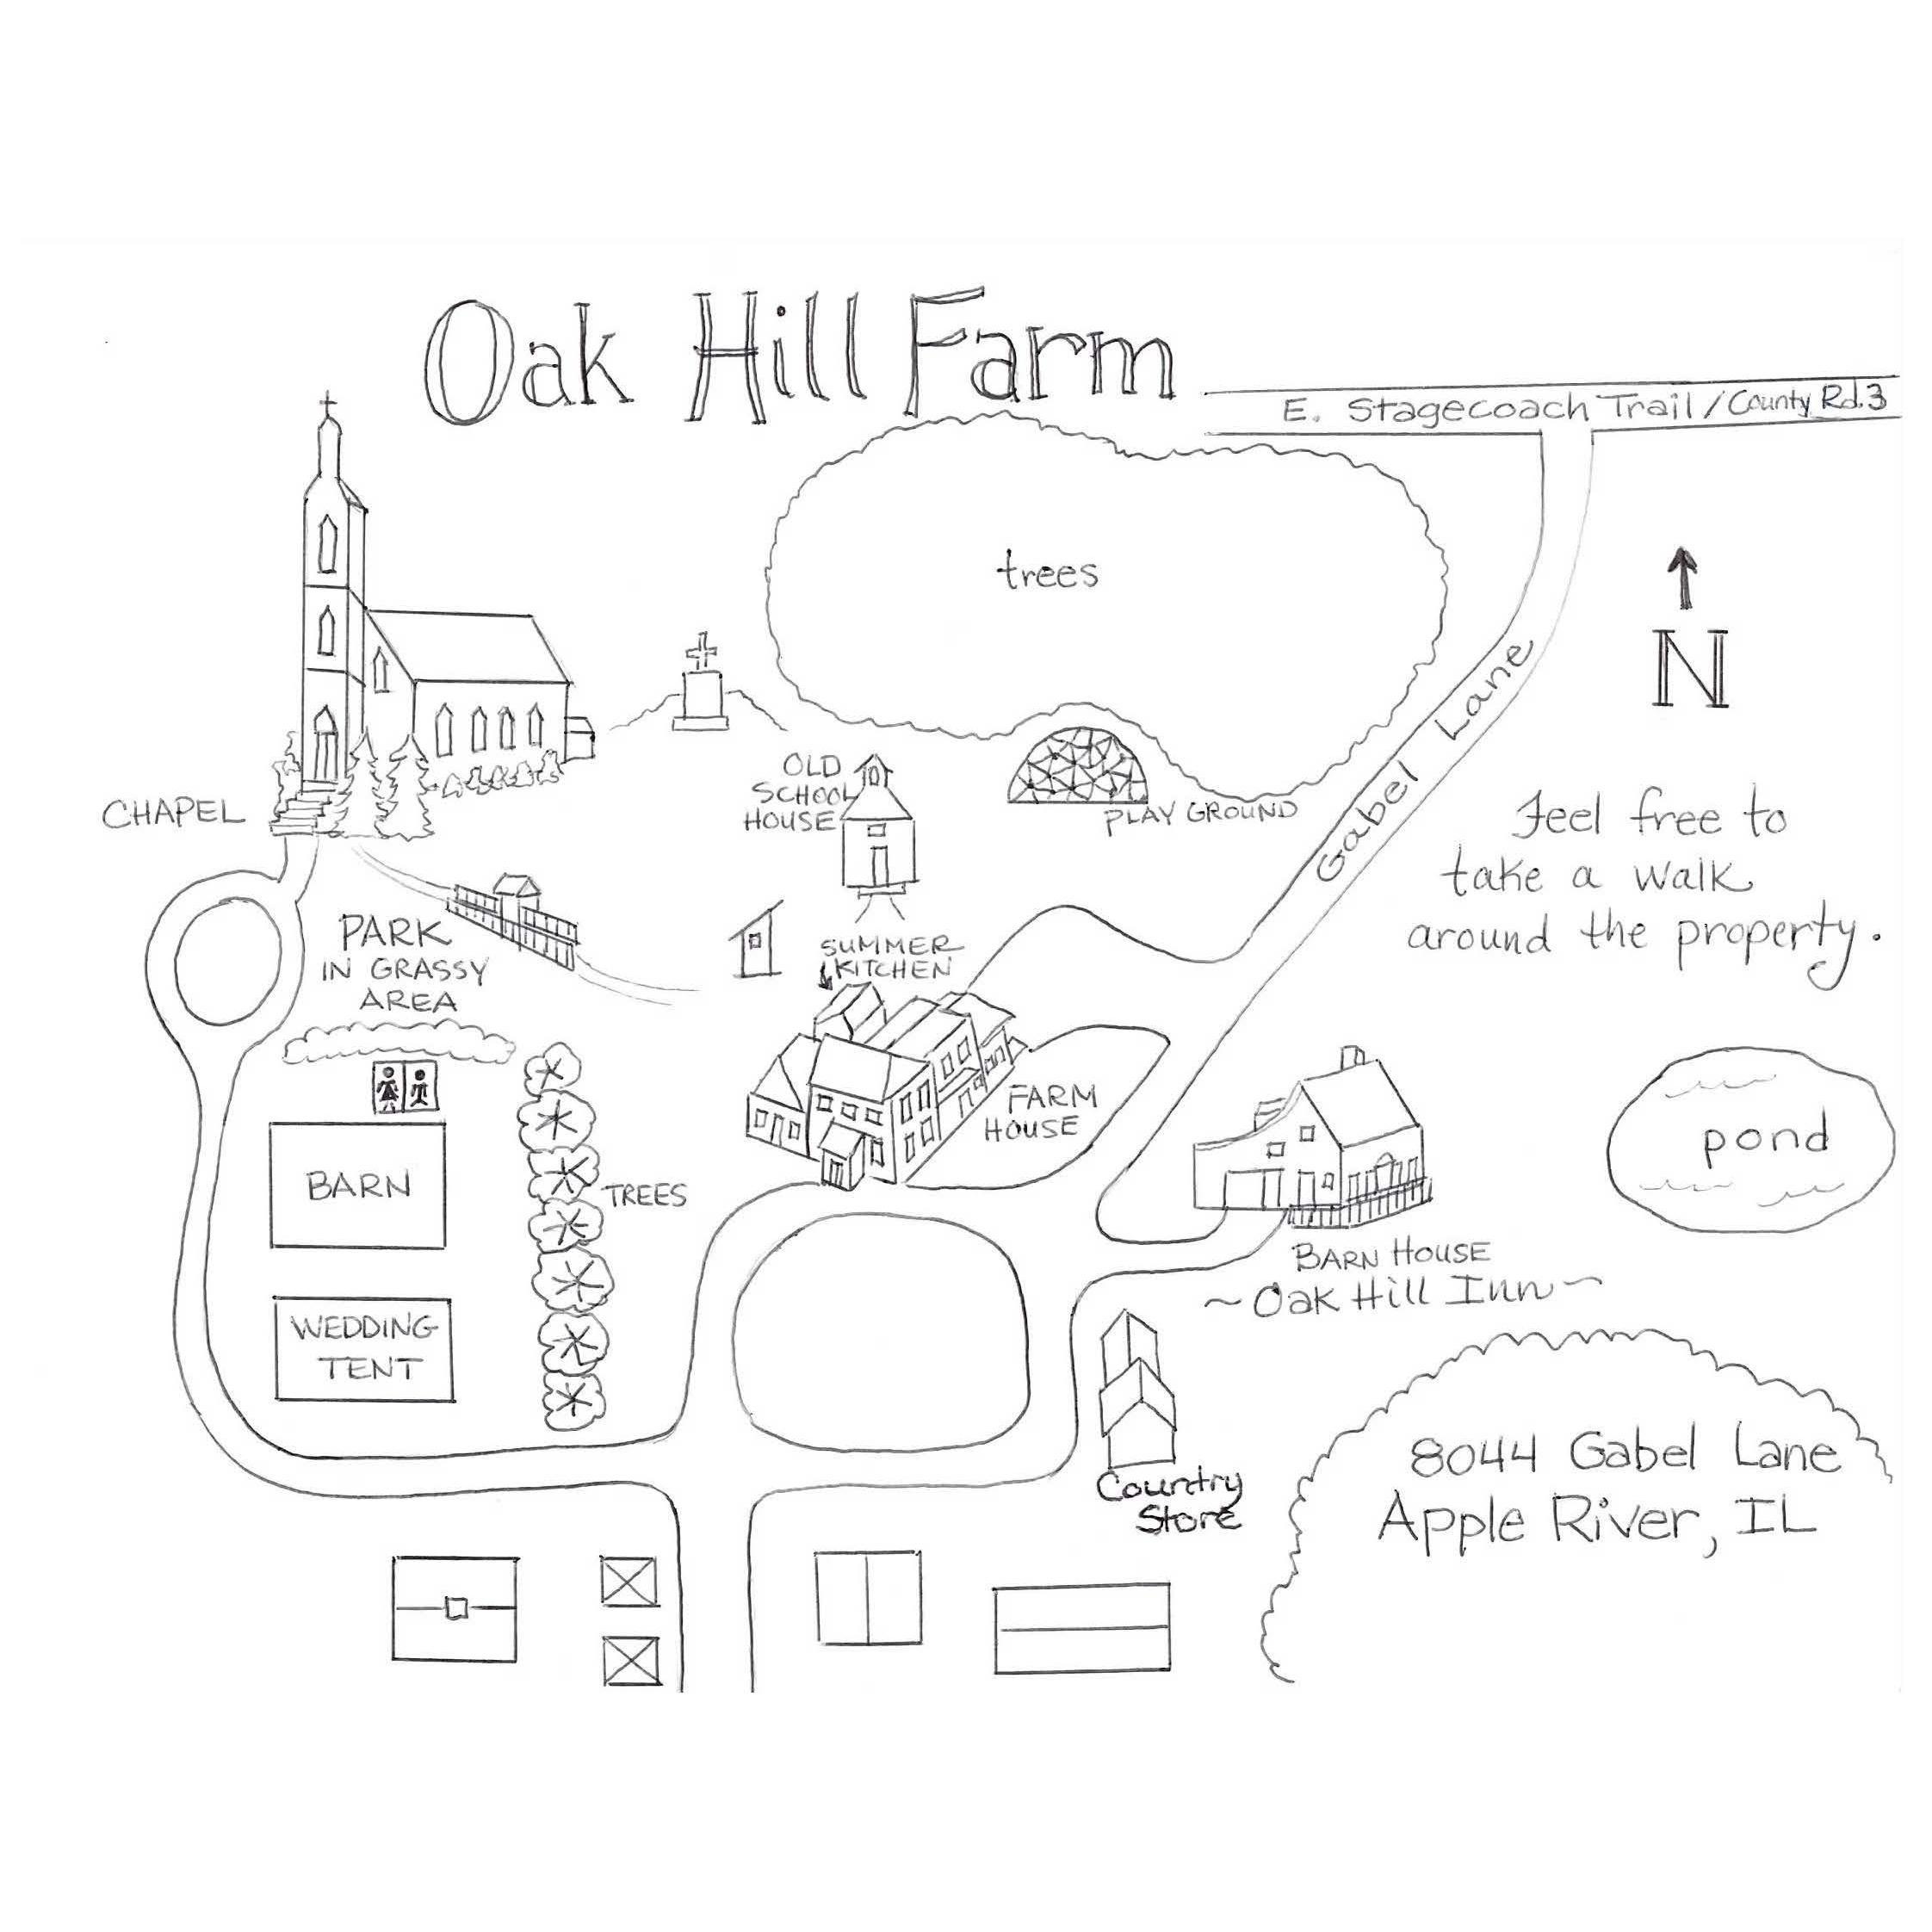 Oak Hill Farm
E. Stagecoach Trail / County Rd. 3
trees
N
Gabel Lane
OLD
SCHOOL
HOUSE
PLAY GROUND
CHAPEL
Feel free to
take a walk
around the property.
PARK
IN GRASSY
AREA
SUMMER
KITCHEN
FARM
HOUSE
pond
BARN
TREES
BARN HOUSE
~ Oak Hill Inn ~
WEDDING
TENT
Country
Store
8044 Gabel Lane
Apple River, IL